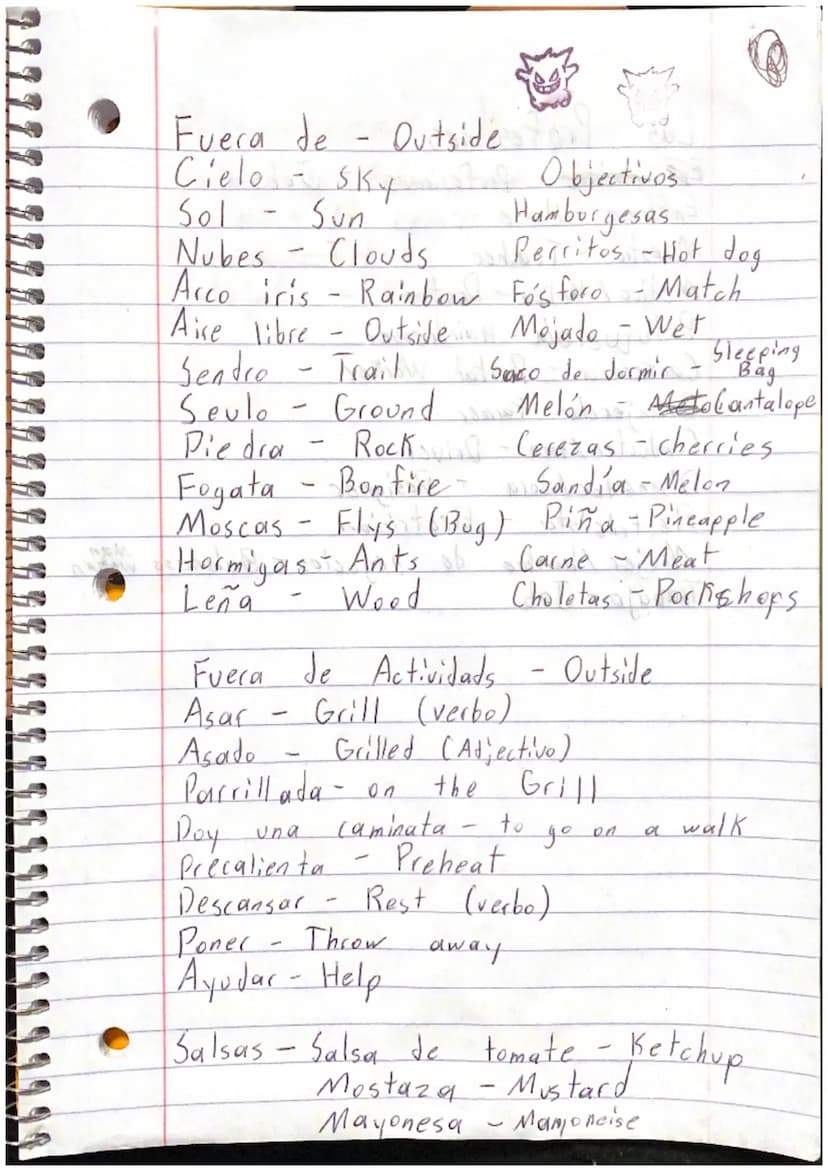 Fuera de - Outside
Cielo - Sky
Sol - Sun
Nubes - Clouds
Arco iris - Rainbow
Aire libre - Outside
Sendro - Trail
Seulo - Ground
Piedra - Rock
Fogata - Bonfire
Moscas - Flys (Bug)
Hormigas - Ants
Leña - Wood
Objectivos
Hamburgesas
Perritos - Hot dog
Fósforo - Match
Mojado - Wet
Saco de dormir - Sleeping Bag
Melón - Cantalope
Cerezas - cherries
Sandía - Melon
Piña - Pineapple
Carne - Meat
Choletas - Porkchops
Fuera de Actividads - Outside
Asar - Grill (verbo)
Asado - Grilled (Adjectivo)
Parrillada - on the Grill
Doy una caminata - to go on a walk
Precalienta - Preheat
Descansar - Rest (verbo)
Poner - Throw away
Ayudar - Help
Salsas - Salsa de tomate - Ketchup
Mostaza - Mustard
Mayonesa - Manoneise